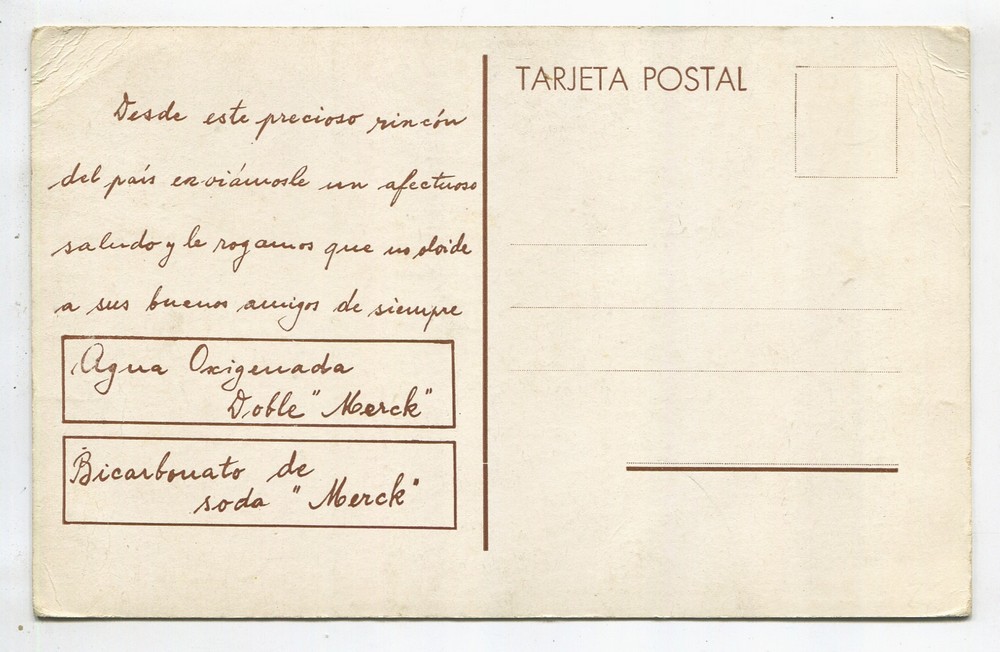 Desde este precioso rincón
del país enviámosle un afectuoso
saludo y le rogamos que no olvide
a sus buenos amigos de siempre
Agua Oxigenada
Doble "Merck"
Bicarbonato de
soda "Merck"
TARJETA POSTAL